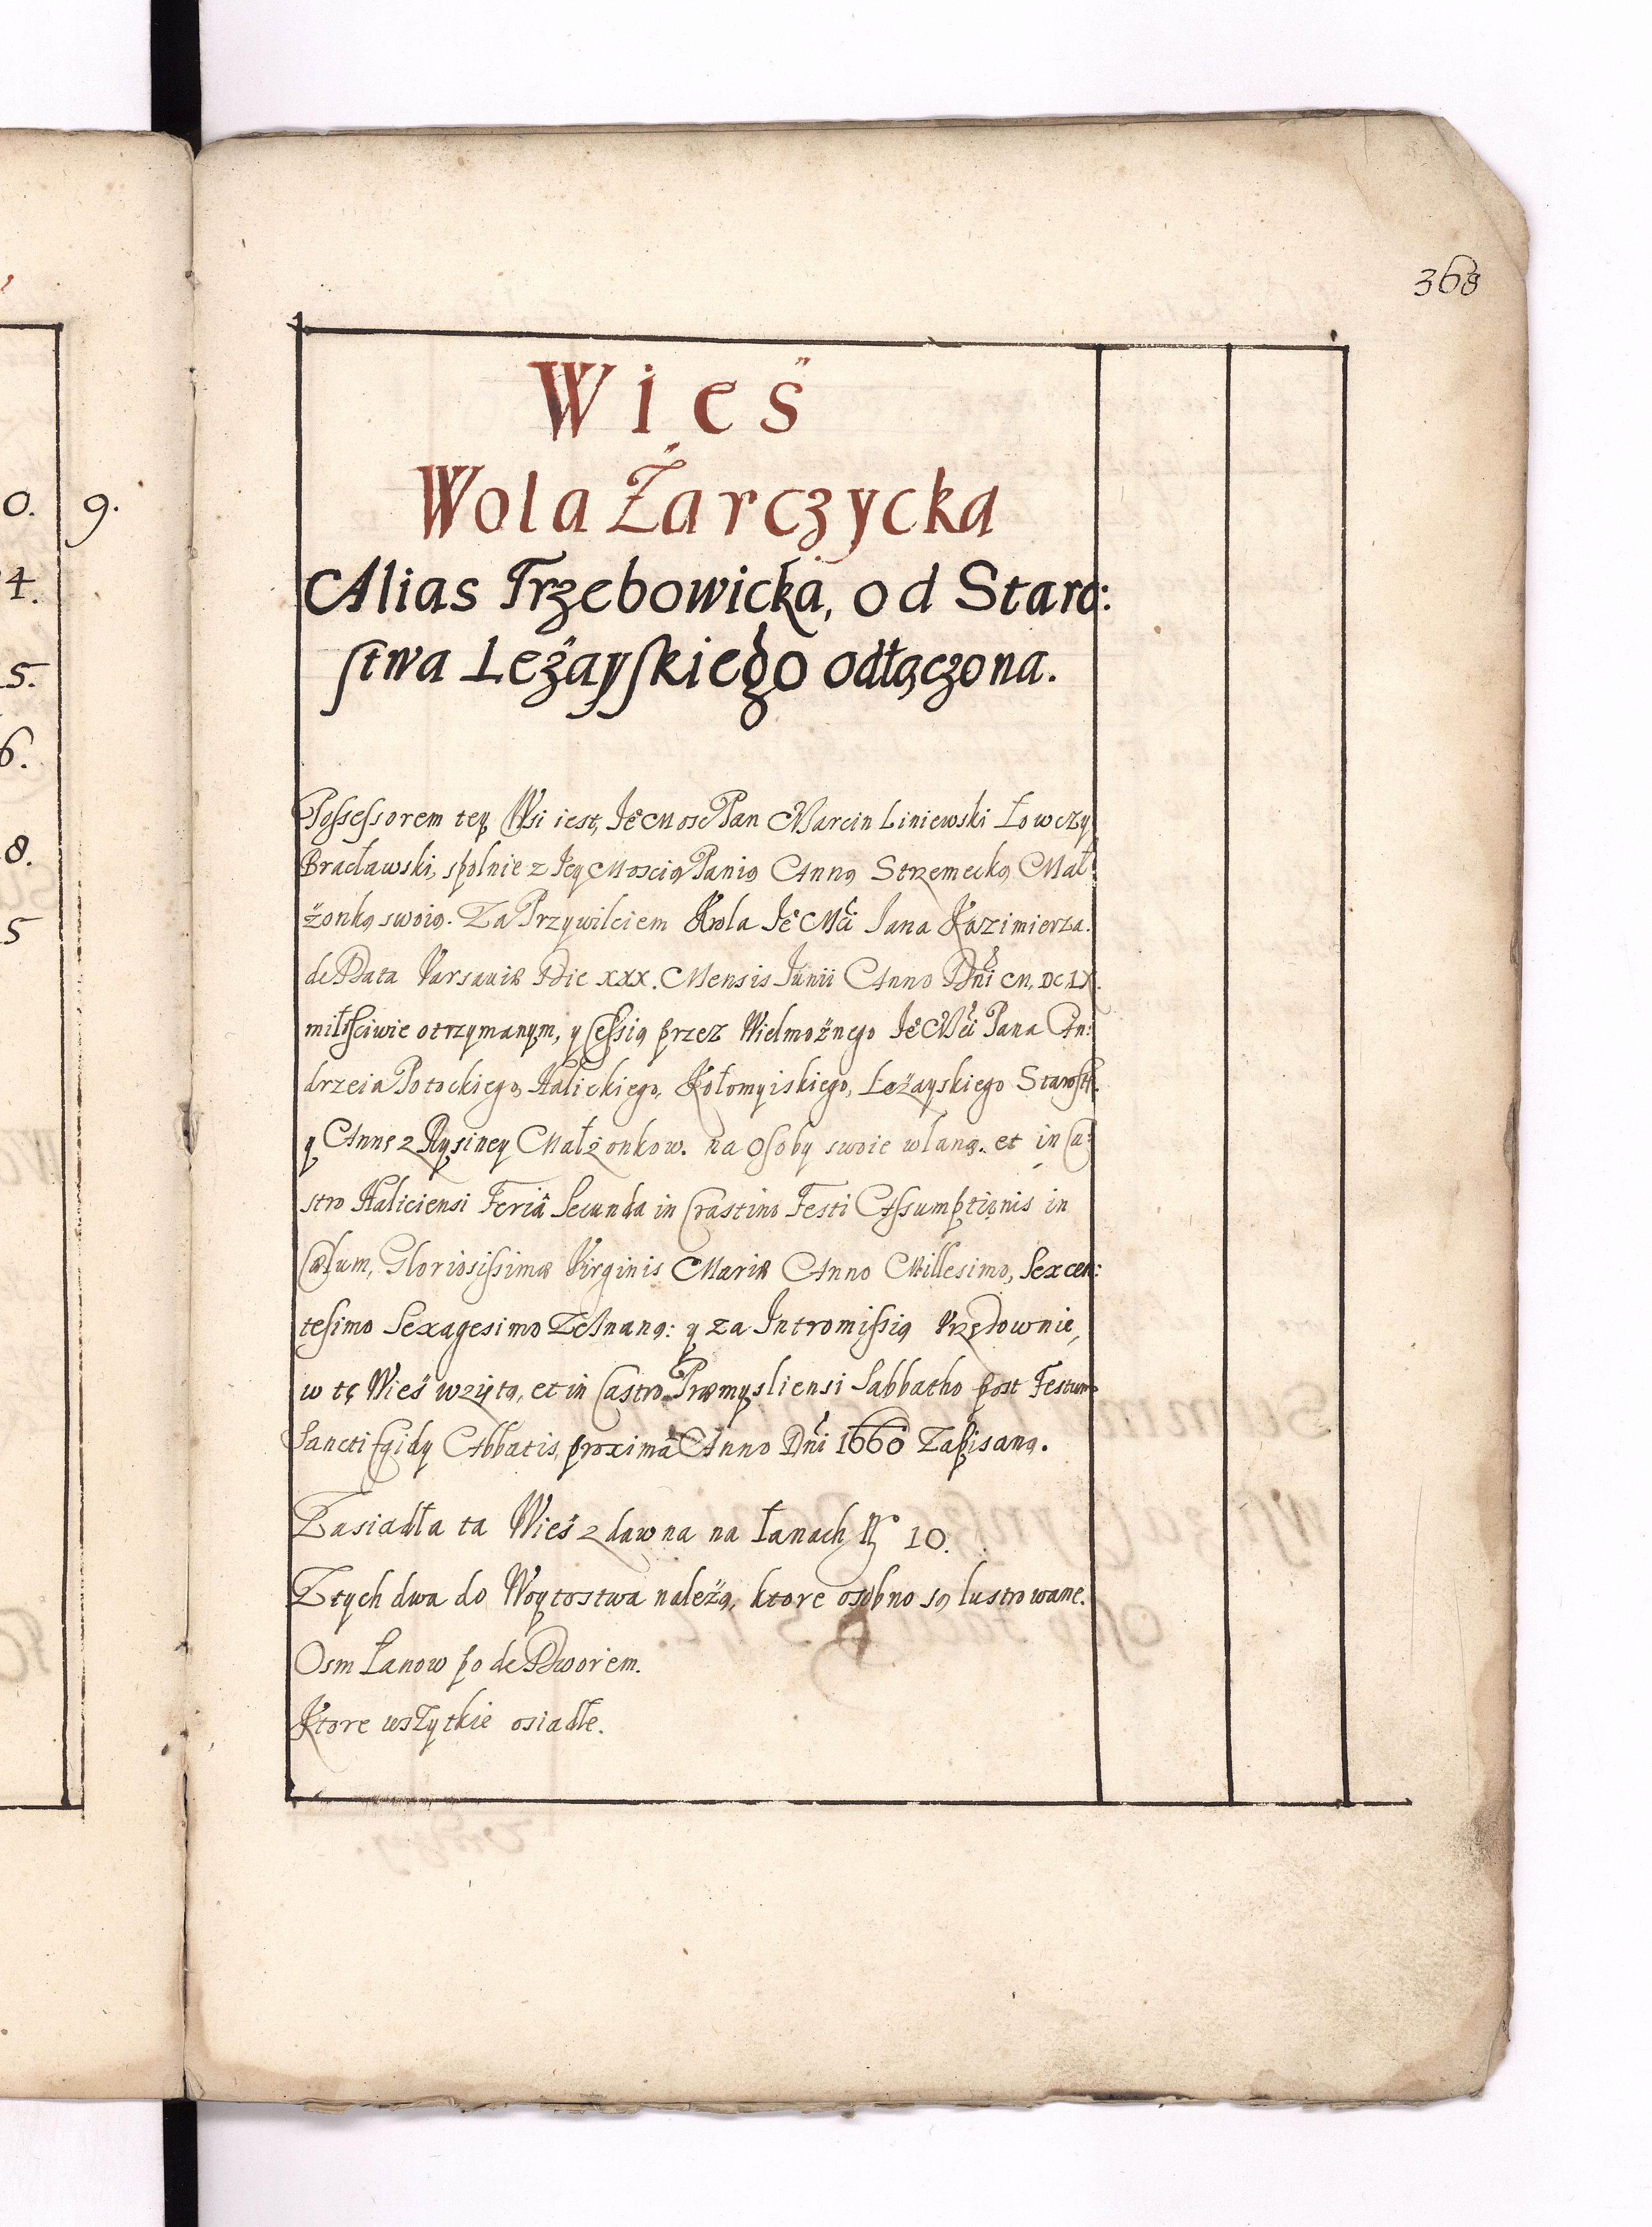 368
0. 9.
4.
5.
6.
8.
5
Wieś
Wola Żarczycka
Alias Trzebowicka, od Staro:
stwa Leżayskiego odłączona.
Possessorem tey Wsi iest, Je Mosc Pan Marcin Liniewski Łowczy
Bracławski, spolnie z Jey Moscią Panią Anną Strzemecką Mał:
żonką swoią. Za Przywileiem Krola Je Mci Jana Kazimierza.
de Data Varsaviæ Die XXX. Mensis Junii Anno Dni M, DC, LX.
miłościwie otrzymanym, y Cessią przez Wielmożnego Je Mci Pana An:
drzeia Potockiego, Halickiego, Kołomyiskiego, Leżayskiego Starostę.
y Annę z Rysiney Małżonkow. na Osoby swoie wlaną. et in Ca:
stro Haliciensi Feriâ Secunda in Crastino Festi Assumptionis in
Cælum, Gloriosissimæ Virginis Mariæ Anno Millesimo, Sexcen:
tesimo Sexagesimo Zeznaną: y za Intromissią Vrzędownie,
w tę Wieś wziętą, et in Castro Præmysliensi Sabbatho post Festum
Sancti Egidy Abbatis, proximâ Anno Dni 1660 Zapisaną.
Zasiadła ta Wieś z dawna na Łanach No 10.
Z tych dwa do Woytostwa należą, ktore osobno są lustrowane.
Osm Łanow po de Dworem.
Ktore wszytkie osiadłe.